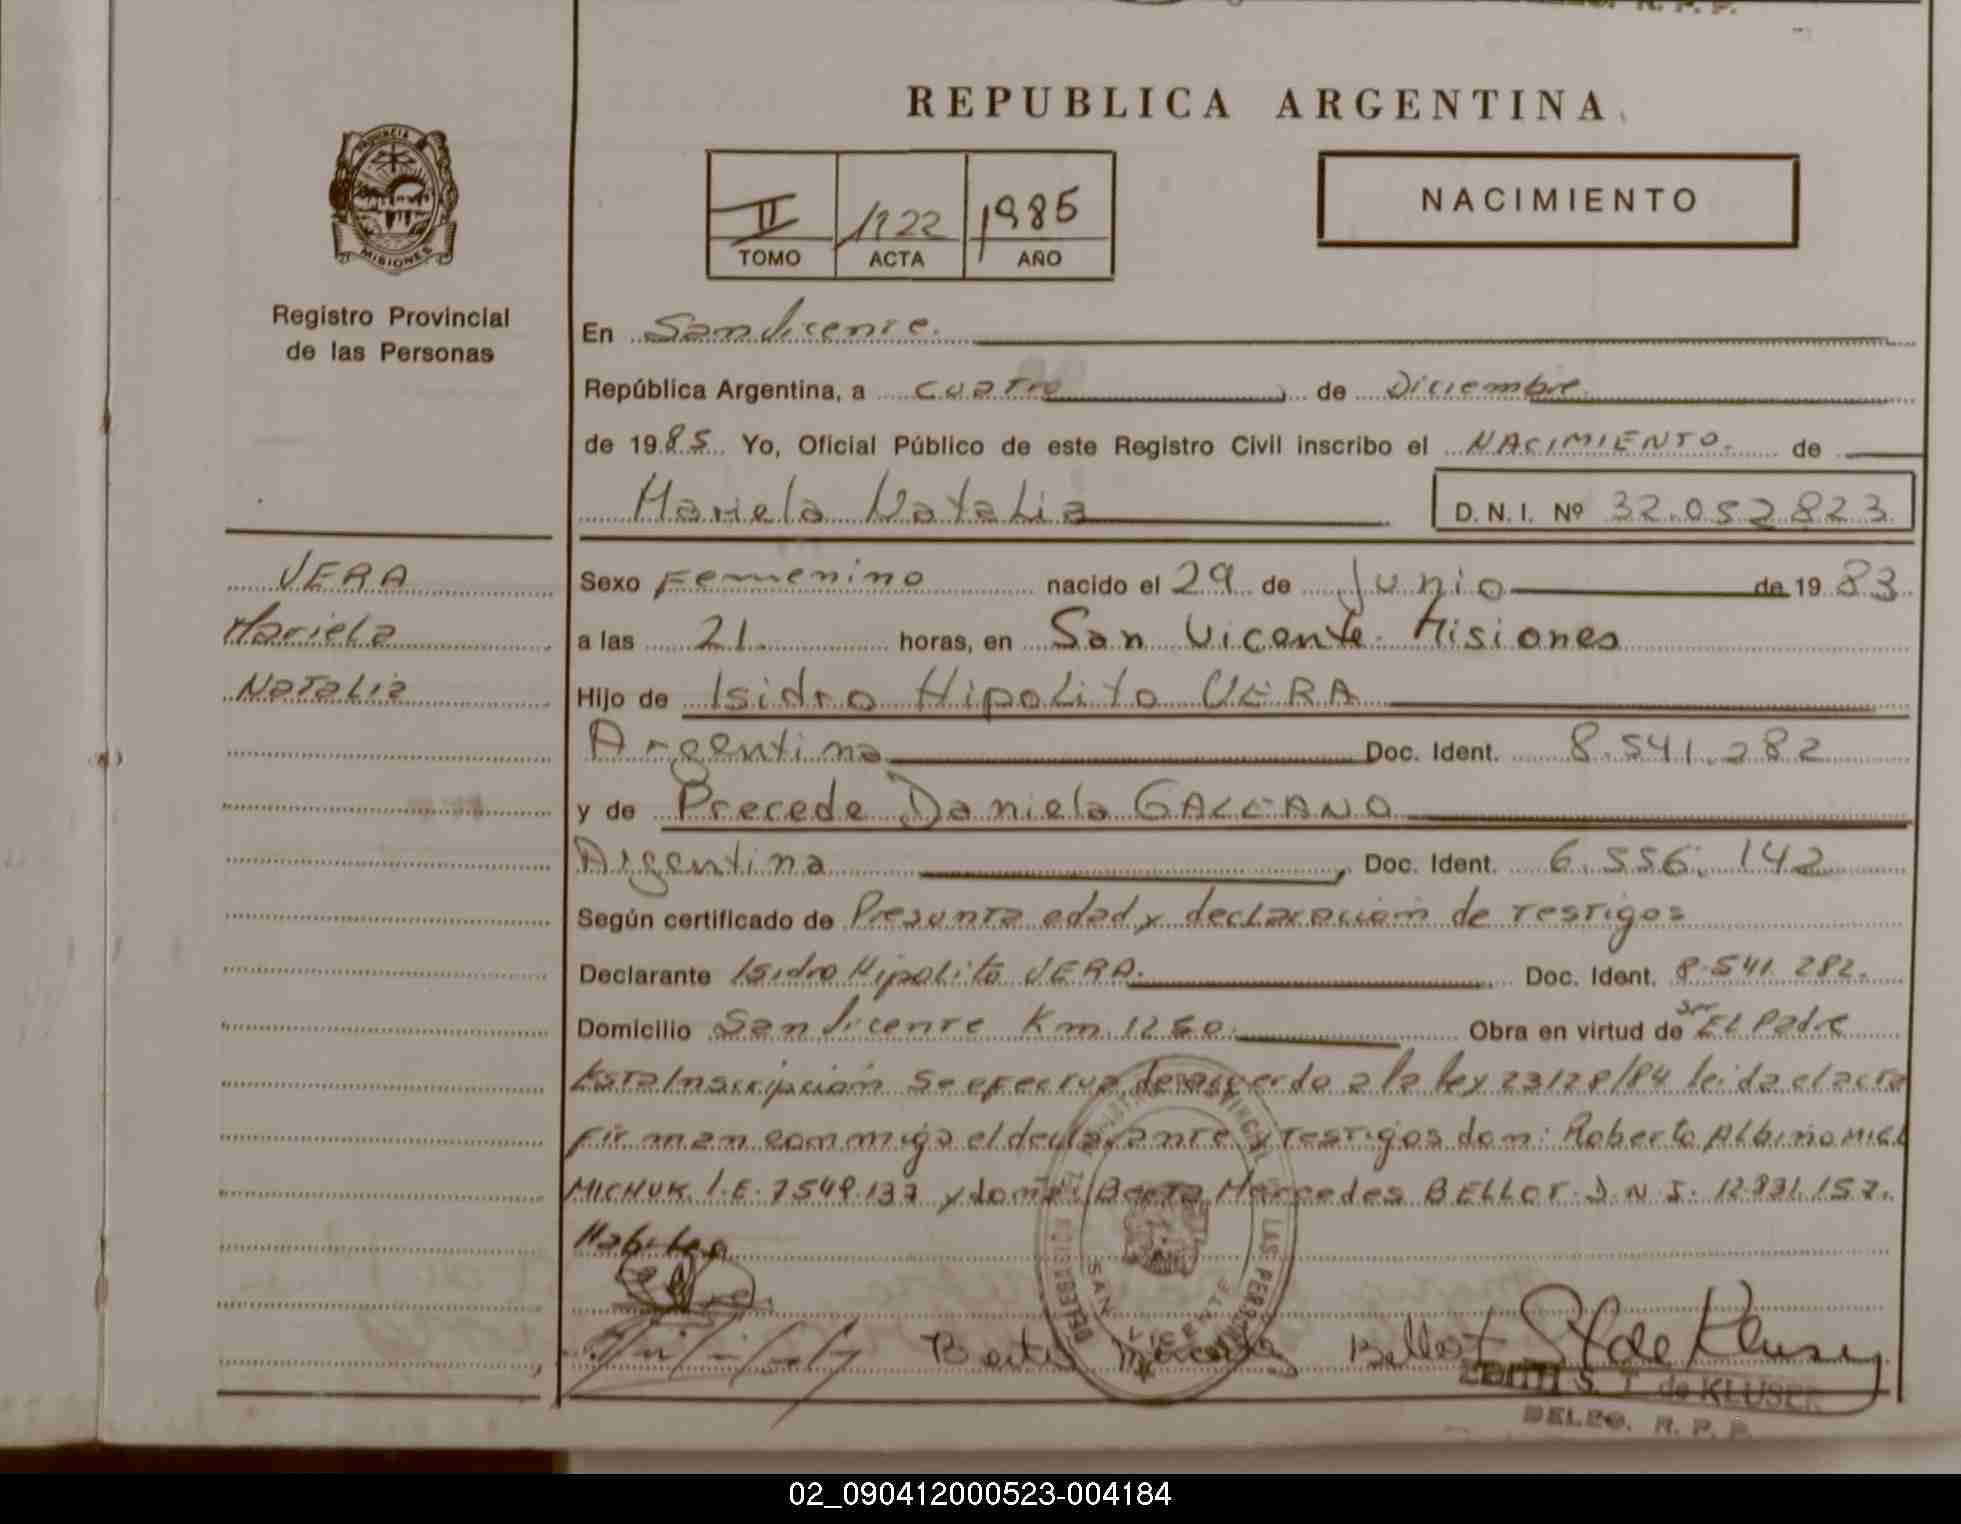 REPUBLICA ARGENTINA
PROVINCIA
MISIONES
II 1122 1985
TOMO ACTA AÑO
NACIMIENTO
Registro Provincial
de las Personas
En San Vicente.
República Argentina, a cuatro de Diciembre
de 1985 Yo, Oficial Público de este Registro Civil inscribo el NACIMIENTO. de
Mariela Natalia D. N. I. Nº 32.052.823
VERA
Mariela
Natalia
Sexo Femenino nacido el 29 de Junio de 1983
a las 21 horas, en San Vicente Misiones
Hijo de Isidro Hipolito VERA
Argentina Doc. Ident. 8.541.282
y de Precede Daniela GALEANO
Argentina Doc. Ident. 6.556.142
Según certificado de Presunta edad y declaracion de testigos
Declarante Isidro Hipolito VERA. Doc. Ident. 8.541.282.
Domicilio San Vicente Km. 1260. Obra en virtud de Ser El Padre
Esta Inscripcion se efectua de acuerdo a la ley 23128/84 leida el acta
firman conmigo el declarante y testigos don: Roberto Albino MICL
MICHUK L.E. 7.549.137 y doña: Berta Mercedes BELLOT D.N.I. 12.831.157.
Berta Mercedes Bellot
S. T. de KLUSER
DELEG. R. P. P.
02_090412000523-004184